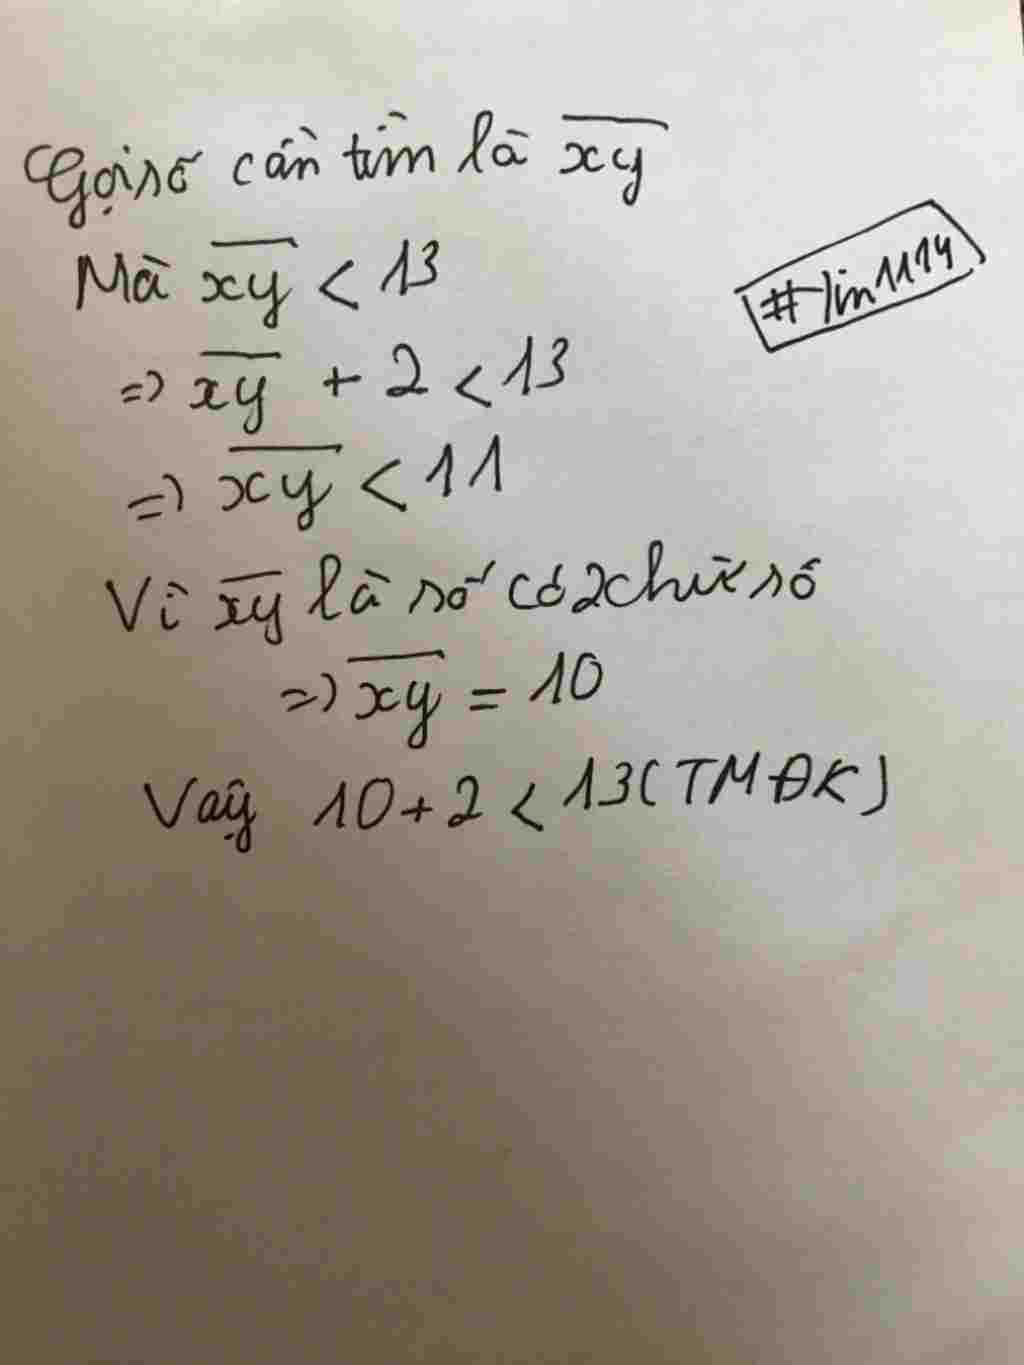 Gọi số cần tìm là xy
Mà xy < 13
#lin1114
=> xy + 2 < 13
=> xy < 11
Vì xy là số có 2 chữ số
=> xy = 10
Vậy 10 + 2 < 13 (TMĐK)